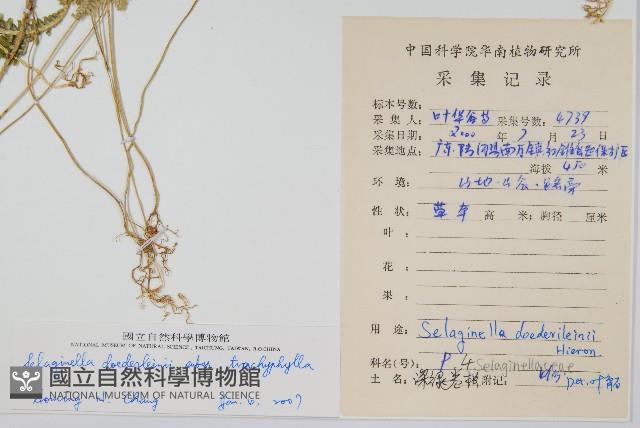 中国科学院华南植物研究所
采集记录
标本号数:
采集人: 叶华谷等 采集号数: 4739
采集日期: 2000 年 7 月 23 日
采集地点: 广东陆河县南万镇 保护区
海拔 450 米
环境: 山地·山谷·
性状: 草本 高 米; 胸径 厘米
叶:
花:
果:
用途: Selaginella doederileinii
Hieron.
科名(号): P.4 Selaginellaceae
土名: 深绿卷柏 附记: Det.
國立自然科學博物館
NATIONAL MUSEUM OF NATURAL SCIENCE, TAICHUNG, TAIWAN, R.O.CHINA
Selaginella doederleinii subsp. trachyphylla
國立自然科學博物館
NATIONAL MUSEUM OF NATURAL SCIENCE
W. Chang Jan. 6, 2007